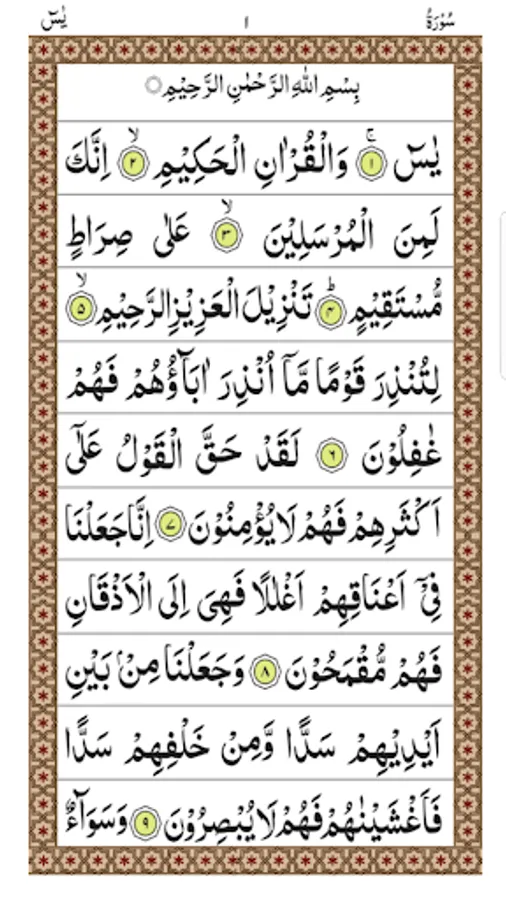 سُوْرَةُ ١ يٰسٓ
بِسْمِ اللّٰهِ الرَّحْمٰنِ الرَّحِيْمِ
يٰسٓ ۚ﴿١﴾ وَالْقُرْاٰنِ الْحَكِيْمِ ۙ﴿٢﴾ اِنَّكَ
لَمِنَ الْمُرْسَلِيْنَ ۙ﴿٣﴾ عَلٰى صِرَاطٍ
مُّسْتَقِيْمٍ ؕ﴿۴﴾ تَنْزِيْلَ الْعَزِيْزِ الرَّحِيْمِ ۙ﴿۵﴾
لِتُنْذِرَ قَوْمًا مَّاۤ اُنْذِرَ اٰبَآؤُهُمْ فَهُمْ
غٰفِلُوْنَ ﴿٦﴾ لَقَدْ حَقَّ الْقَوْلُ عَلٰٓى
اَكْثَرِهِمْ فَهُمْ لَا يُؤْمِنُوْنَ ﴿۷﴾ اِنَّا جَعَلْنَا
فِيْۤ اَعْنَاقِهِمْ اَغْلٰلًا فَهِىَ اِلَى الْاَذْقَانِ
فَهُمْ مُّقْمَحُوْنَ ﴿۸﴾ وَجَعَلْنَا مِنْۢ بَيْنِ
اَيْدِيْهِمْ سَدًّا وَّمِنْ خَلْفِهِمْ سَدًّا
فَاَغْشَيْنٰهُمْ فَهُمْ لَا يُبْصِرُوْنَ ﴿۹﴾ وَسَوَآءٌ